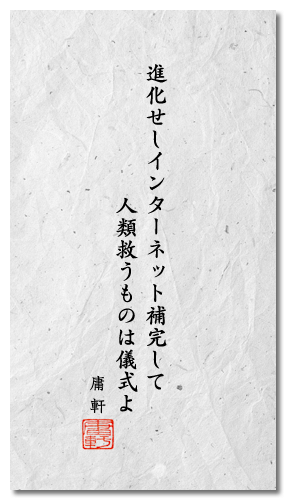 進化せしインターネット補完して
人類救うものは儀式よ
庸軒
庸軒